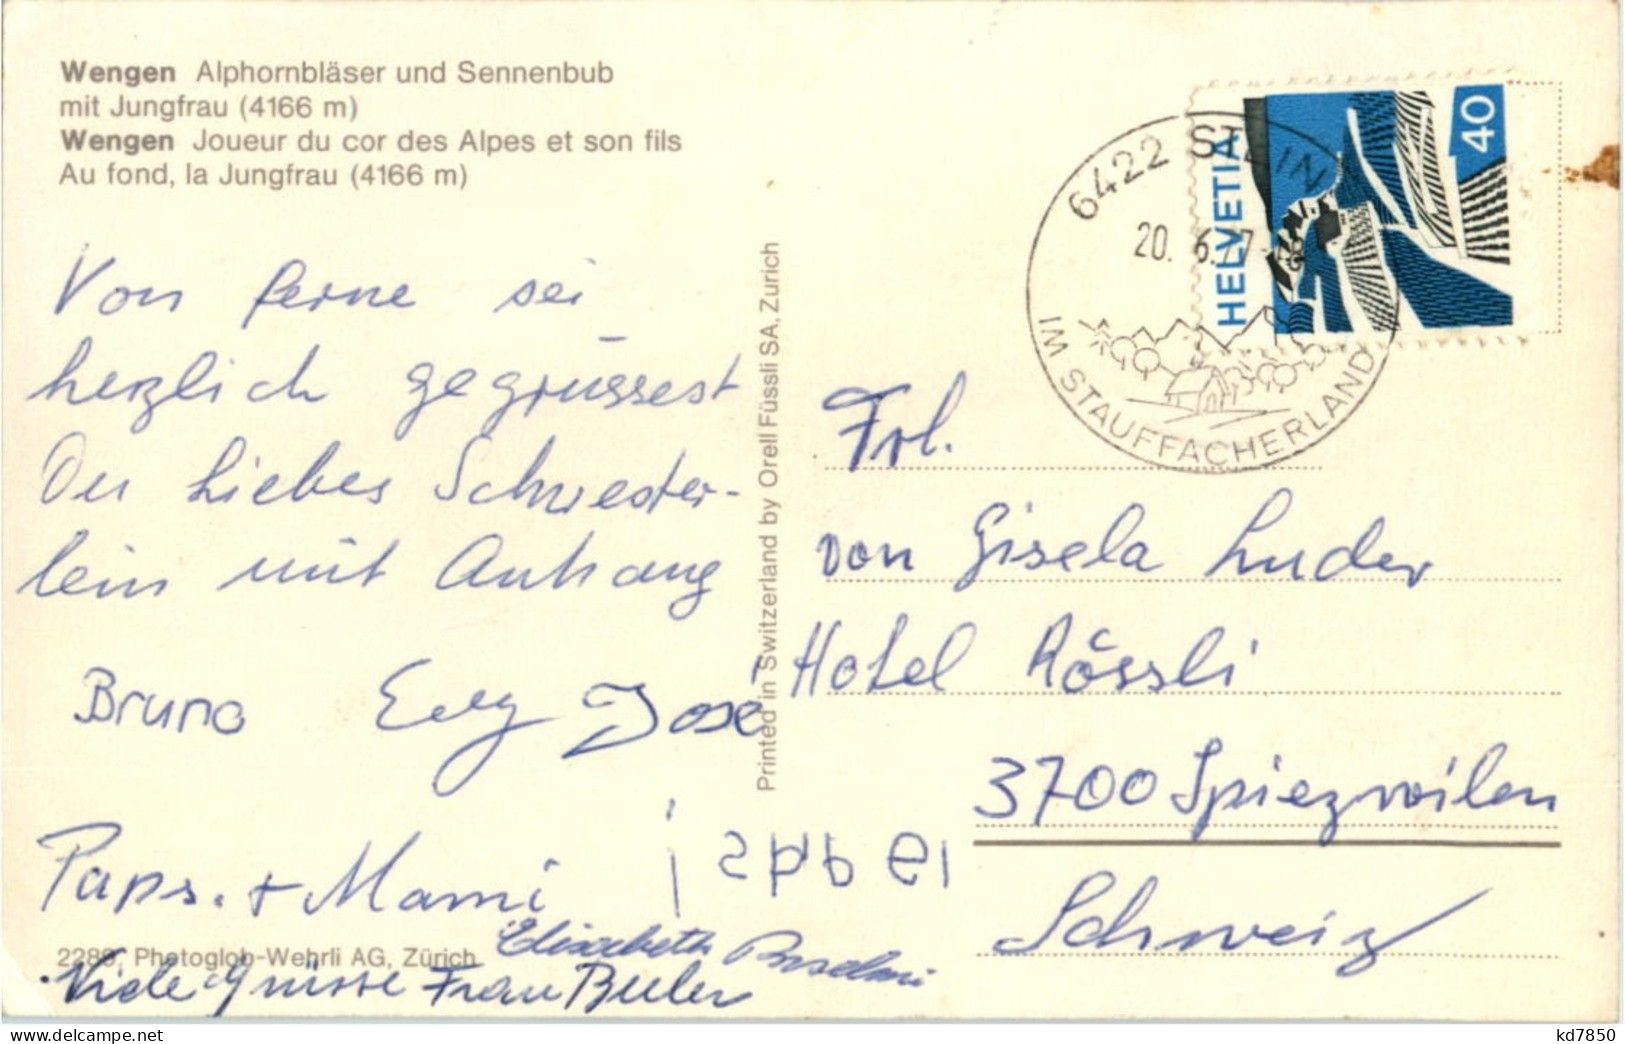 Wengen Alphornbläser und Sennenbub
mit Jungfrau (4166 m)
Wengen Joueur du cor des Alpes et son fils
Au fond, la Jungfrau (4166 m)
Von ferne sei
herzlich gegrüssest
Du liebes Schwester-
lein mit Anhang
Bruno José
Paps. + Mami
Elisabeth
Viele Grüsse Frau Beeler
Photoglob-Wehrli AG, Zürich
Printed in Switzerland by Orell Füssli SA, Zurich
6422 STEIN
20. 6. 7
IM STAUFFACHERLAND
HELVETIA
40
Frl.
von Gisela Luder
Hotel Rössli
3700 Spiezwilen
Schweiz
kd7850